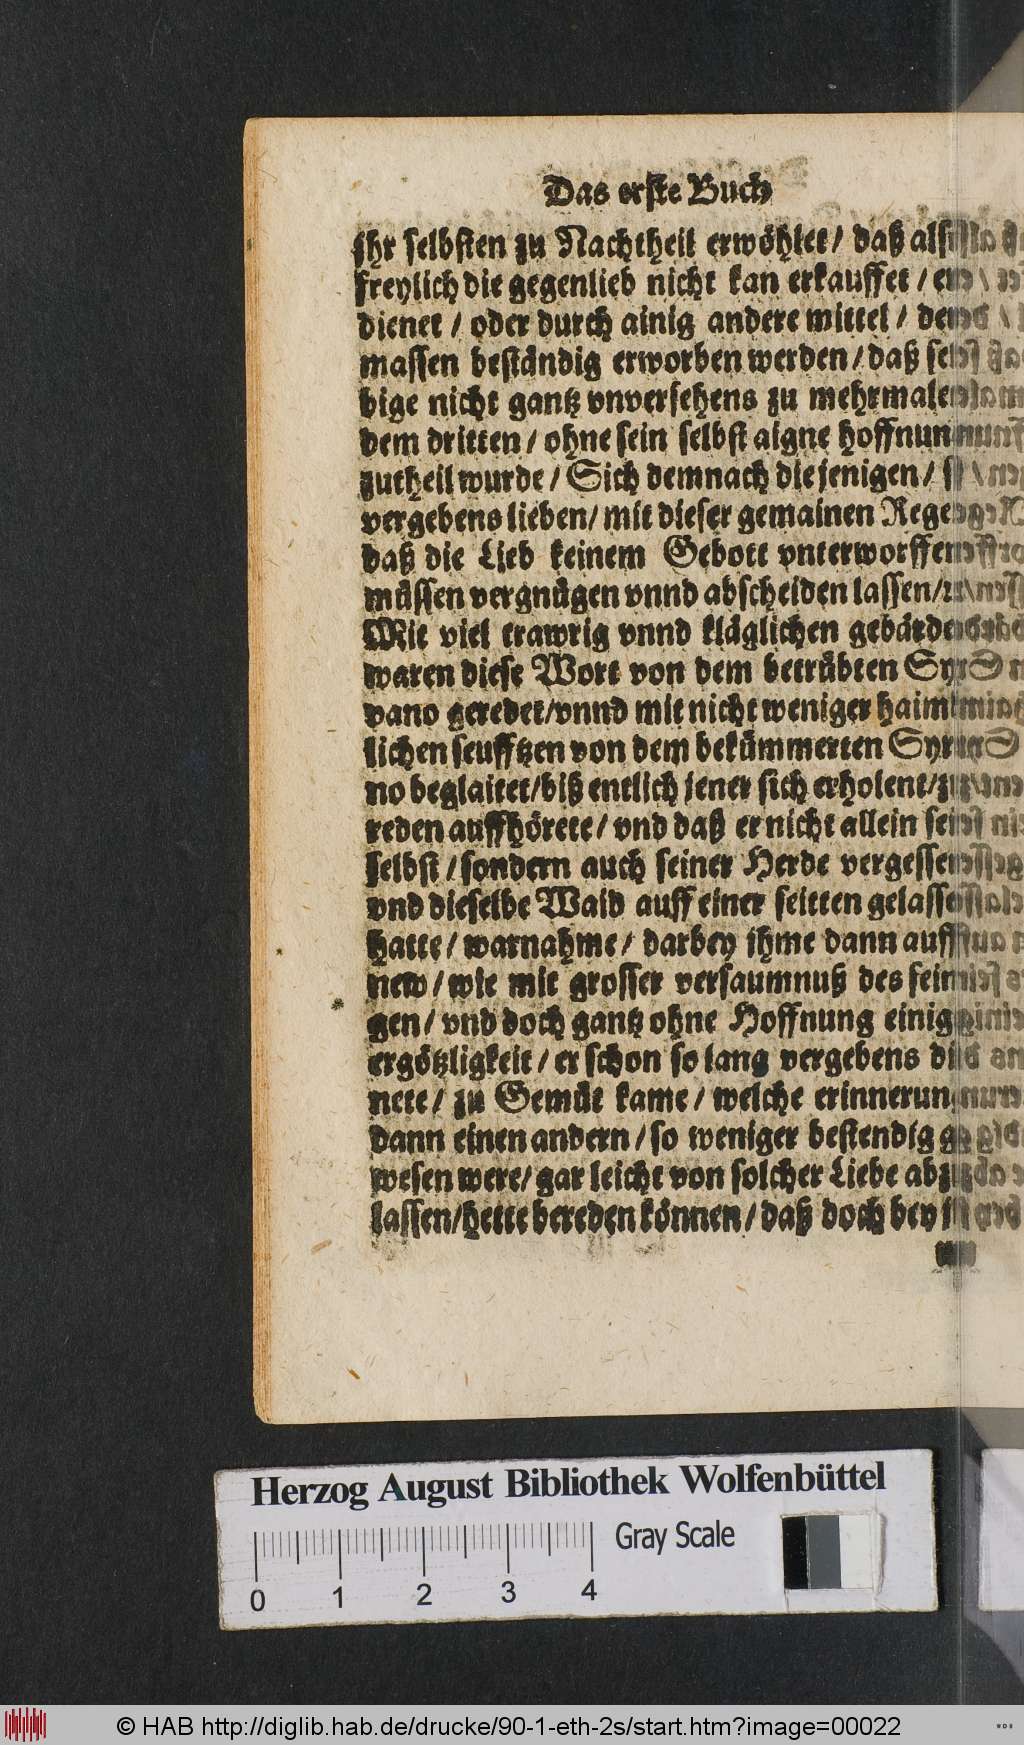 Das erste Buch
ihr selbsten zu Nachtheil erwöhlet / daß als
freylich die gegenlieb nicht kan erkauffet / er
dienet / oder durch ainig andere mittel / der
massen beständig erworben werden / daß sel
bige nicht gantz vnversehens zu mehrmalen
dem dritten / ohne sein selbst aigne hoffnun
zutheil wurde / Sich demnach die jenigen / s
vergebens lieben / mit dieser gemainen Rege
daß die Lieb keinem Gebott vnterworffen
müssen vergnügen vnnd abscheiden lassen /
Mit viel trawrig vnnd kläglichen gebärde
waren diese Wort von dem betrübten Syr
vano geredet / vnnd mit nicht weniger haim
lichen seufftzen von dem bekümmerten Syre
no beglaitet / biß entlich jener sich erholent / zu
reden auffhörete / vnd daß er nicht allein sein
selbst / sondern auch seiner Herde vergessen
vnd dieselbe Waid auff einer seitten gelassen
hatte / warnahme / darbey ihme dann auff
new / wie mit grosser versaumnuß des sein
gen / vnd doch gantz ohne Hoffnung einig
ergötzligkeit / er schon so lang vergebens di
nete / zu Gemüt kame / welche erinnerun
dann einen andern / so weniger bestendig ge
wesen were / gar leicht von solcher Liebe abzu
lassen / hette bereden können / daß doch bey
Herzog August Bibliothek Wolfenbüttel
Gray Scale
0 1 2 3 4
© HAB http://diglib.hab.de/drucke/90-1-eth-2s/start.htm?image=00022